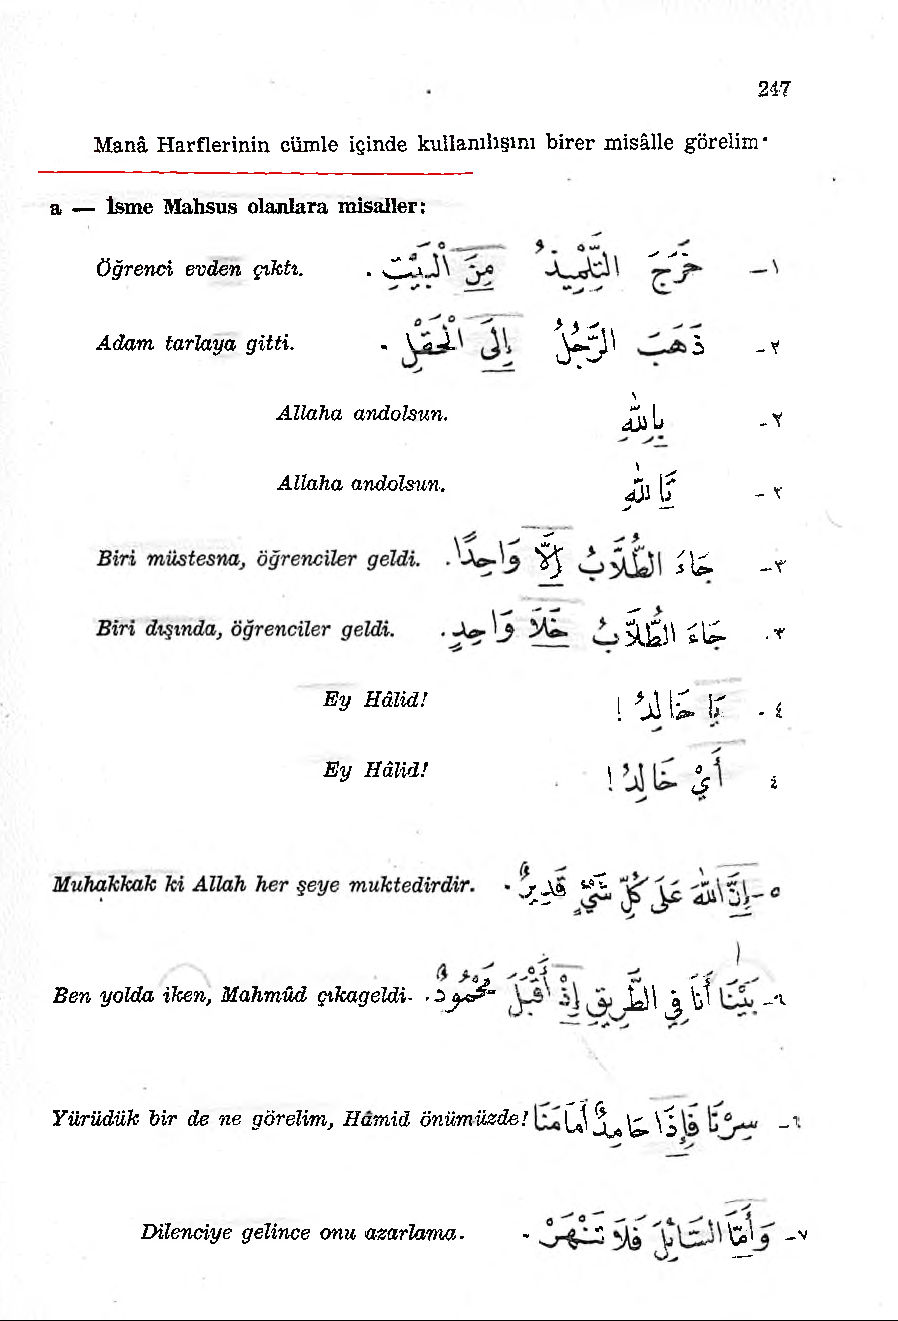 247
Manâ Harflerinin cümle içinde kullanılışını birer misâlle görelim·
a — İsme Mahsus olanlara misaller:
Öğrenci evden çıktı. ١ – خَرَجَ التِّلْمِيذُ مِنَ الْبَيْتِ .
Adam tarlaya gitti. ٢ - ذَهَبَ الرَّجُلُ إِلَى الْحَقْلِ .
Allaha andolsun. ٢ - بِاللهِ
Allaha andolsun. ٢ - تَاللهِ
Biri müstesna, öğrenciler geldi. ٣ – جَاءَ الطُّلَّابُ إِلَّا وَاحِدًا .
Biri dışında, öğrenciler geldi. ٣ . جَاءَ الطُّلَّابُ خَلَا وَاحِدٍ .
Ey Hâlid! ٤ - يَا خَالِدُ !
Ey Hâlid! ٤ أَيْ خَالِدُ !
Muhakkak ki Allah her şeye muktedirdir. ٥ – إِنَّ اللهَ عَلَى كُلِّ شَيْءٍ قَدِيرٌ .
Ben yolda iken, Mahmûd çıkageldi- ٦ – بَيْنَا أَنَا فِي الطَّرِيقِ إِذْ أَقْبَلَ مَحْمُودٌ .
Yürüdük bir de ne görelim, Hâmid önümüzde! ٦ – سِرْنَا فَإِذَا حَامِدٌ أَمَامَنَا
Dilenciye gelince onu azarlama. ٧ – وَأَمَّا السَّائِلَ فَلَا تَنْهَرْ .